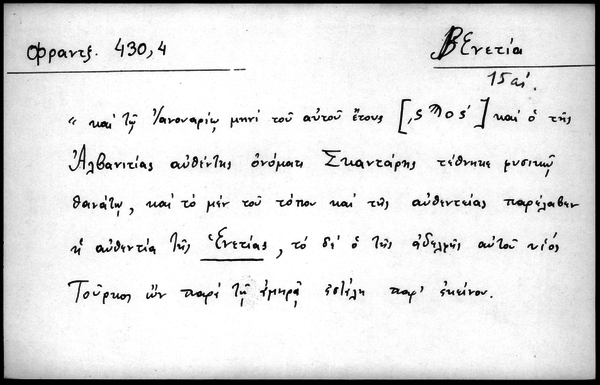 Φραντζ. 430,4
Βενετία
15 αἰ.
“ καὶ τῷ Ἰανουαρίῳ μηνὶ τοῦ αὐτοῦ ἔτους [,ςϠος´] καὶ ὁ τῆς
Ἀλβανιτίας αὐθέντης ὀνόματι Σκαντάρης τέθνηκε φυσικῷ
θανάτῳ, καὶ τὸ μὲν τοῦ τόπου καὶ τῆς αὐθεντείας παρέλαβεν
ἡ αὐθεντία τῆς Ἑνετίας, τὸ δὲ ὁ τῆς ἀδελφῆς αὐτοῦ υἱός
Τοῦρκος ὢν παρὰ τῷ ἀμηρᾷ ἐστάλη παρ' ἐκείνου.